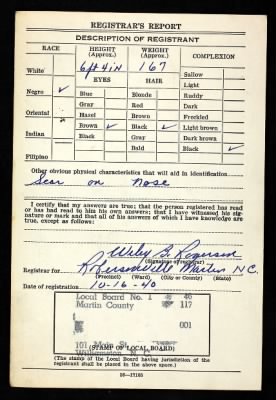 REGISTRAR'S REPORT
DESCRIPTION OF REGISTRANT
RACE HEIGHT (Approx.) WEIGHT (Approx.) COMPLEXION
White 6 ft 4 in 167 Sallow
EYES HAIR Light
Negro ✓ Blue Blonde Ruddy
Gray Red Dark
Oriental Hazel Brown Freckled
Brown ✓ Black ✓ Light brown
Indian Black Gray Dark brown
Bald Black ✓
Filipino
Other obvious physical characteristics that will aid in identification
Scar on nose
I certify that my answers are true; that the person registered has read
or has had read to him his own answers; that I have witnessed his sig-
nature or mark and that all of his answers of which I have knowledge
are true, except as follows:
Wiley G. Rogerson
(Signature of registrar)
Registrar for Robersonville Martin N.C.
(Precinct) (Ward) (City or County) (State)
Date of registration 10-16-40
Local Board No. 1 46
Martin County 117
001
101 Main St.
Williamston, N. C.
(STAMP OF LOCAL BOARD)
(The stamp of the Local Board having jurisdiction of the
registrant shall be placed in the above space.)
16—17105